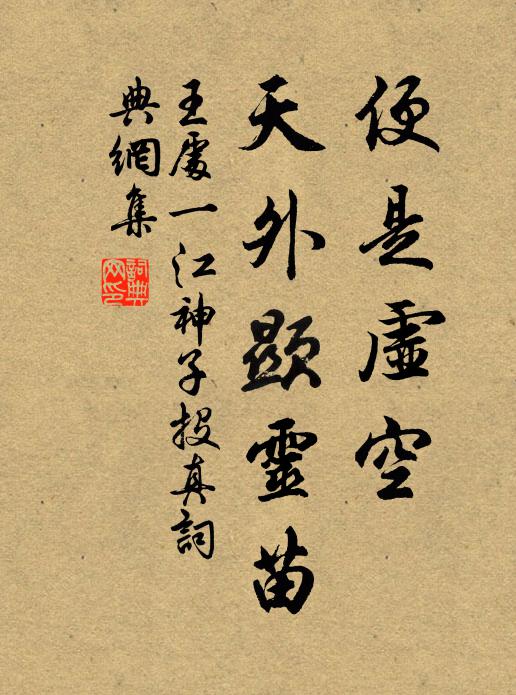 便是虛空
天外顯靈苗
王處一江神子投真詞
典網集
詞典網印